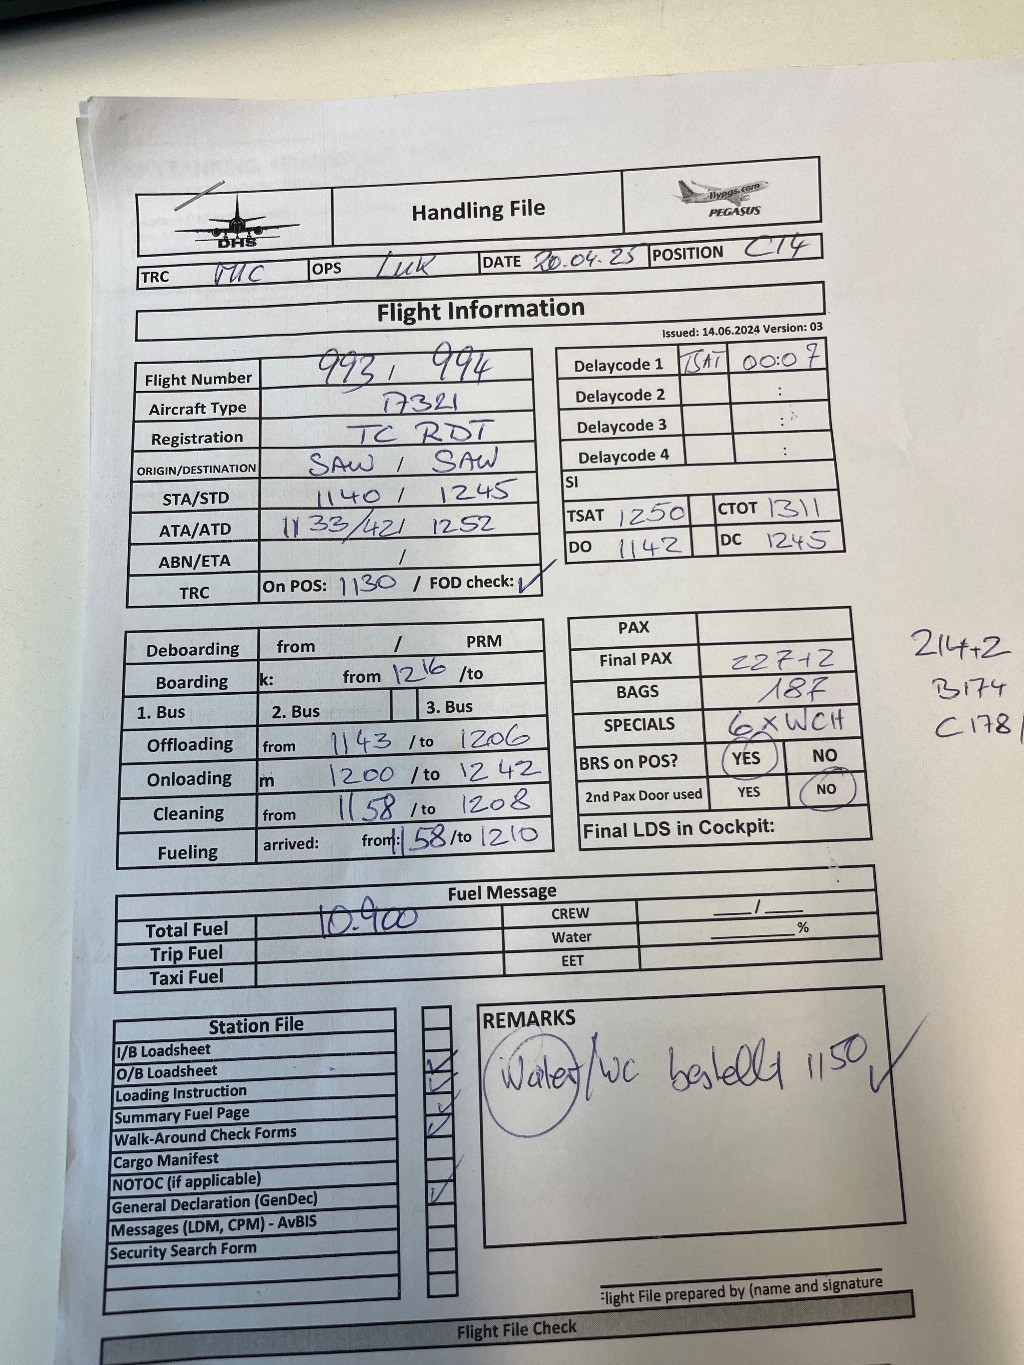 DHS
Handling File
flypgs.com
PEGASUS
TRC MIC OPS LUK DATE 20.04.25 POSITION CT4
Flight Information
Issued: 14.06.2024 Version: 03
Flight Number 993 / 994
Aircraft Type
Registration TC RDT
ORIGIN/DESTINATION SAW / SAW
STA/STD 1140 / 1245
ATA/ATD 1133/42/ 1252
ABN/ETA /
TRC On POS: 1130 / FOD check: ✓
Delaycode 1 TSAT 00:07
Delaycode 2 :
Delaycode 3 :
Delaycode 4 :
SI
TSAT 1250 CTOT 1311
DO 1142 DC 1245
Deboarding from / PRM
Boarding k: from 1216 /to
1. Bus 2. Bus 3. Bus
Offloading from 1143 /to 1206
Onloading m 1200 /to 1242
Cleaning from 1158 /to 1208
Fueling arrived: from: 1158 /to 1210
PAX
Final PAX 227+2
BAGS 187
SPECIALS 6 x WCH
BRS on POS? YES NO
2nd Pax Door used YES NO
Final LDS in Cockpit:
214+2
B174
C178/
Fuel Message
Total Fuel 10.900 CREW ___/___
Trip Fuel Water ______%
Taxi Fuel EET
Station File
I/B Loadsheet
O/B Loadsheet
Loading Instruction
Summary Fuel Page
Walk-Around Check Forms
Cargo Manifest
NOTOC (if applicable)
General Declaration (GenDec)
Messages (LDM, CPM) - AvBIS
Security Search Form
REMARKS
Water/WC bestellt 1150 ✓
Flight File prepared by (name and signature
Flight File Check